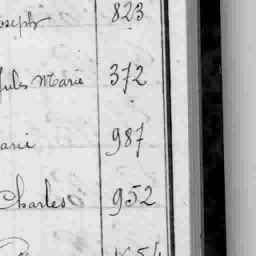 oseph 823
Jules Marie 372
arie 987
Charles 952